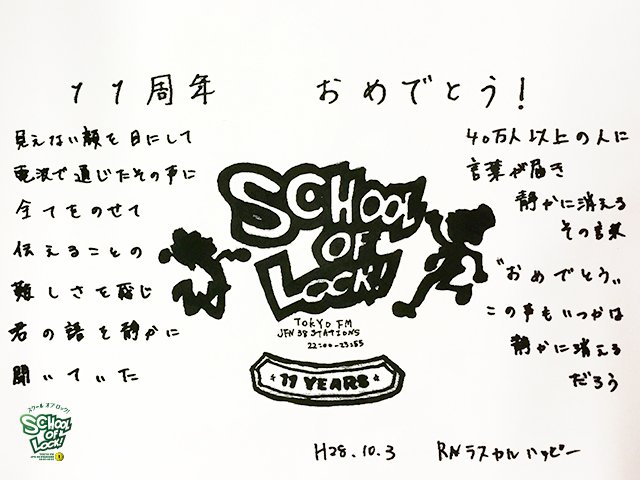 11周年 おめでとう!
見えない顔を目にして
電波で通じたその声に
全てをのせて
伝えることの
難しさを感じ
君の語を静かに
聞いていた
SCHOOL
OF
LOCK!
TOKYO FM
JFN 38 STATIONS
22:00-23:55
11 YEARS
40万人以上の人に
言葉が届き
静かに消える
その言葉
"おめでとう"
この声もいつかは
静かに消える
だろう
スクール オブ ロック!
SCHOOL
OF
LOCK!
H28.10.3 RNラスカルハッピー